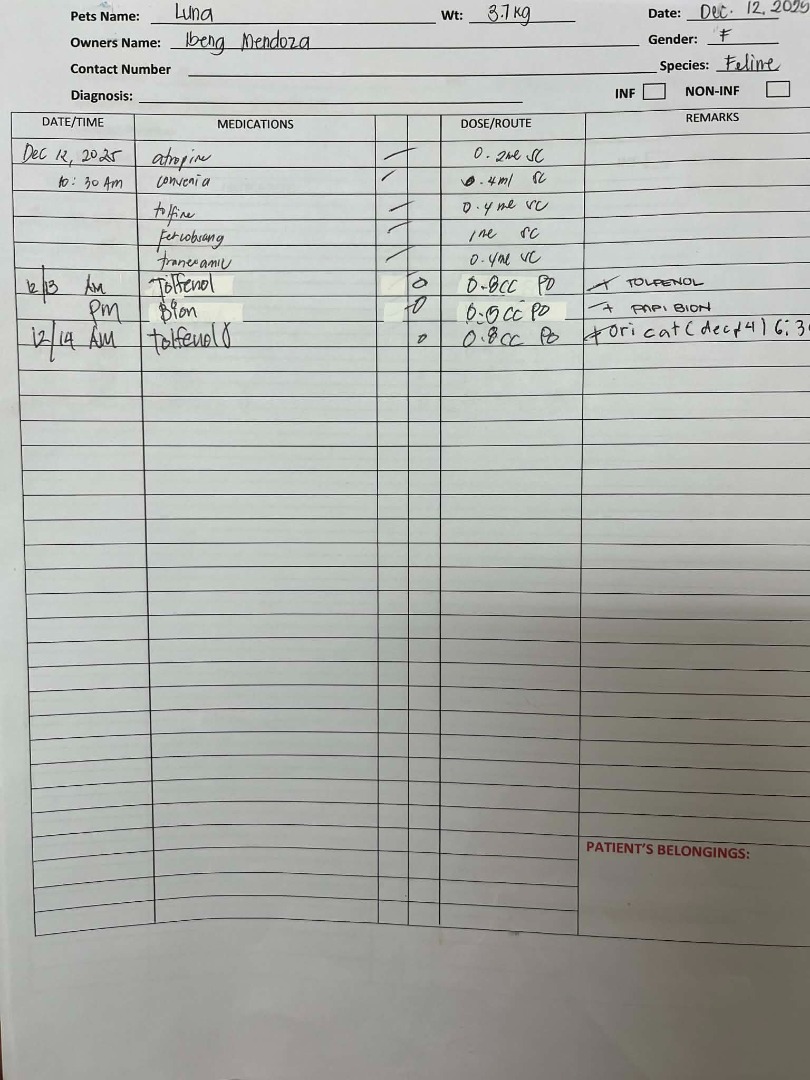 Pets Name: Luna Wt: 3.7 kg Date: Dec. 12, 2025
Owners Name: Ibeng Mendoza Gender: F
Contact Number Species: Feline
Diagnosis: INF NON-INF
DATE/TIME MEDICATIONS DOSE/ROUTE REMARKS
Dec 12, 2025 atropine 0.2ml SC
10:30 Am convenia 0.4ml SC
tolfine 0.4ml SC
Fercobsang 1ml SC
tranexamic 0.4ml SC
12/13 Am Tolfenol 0.8cc PO TOLPENOL
Pm Bion 0.5cc PO PAPI BION
12/14 Am tolfenol 0.8cc Po ori cat (dec 14) 6:3
PATIENT'S BELONGINGS: